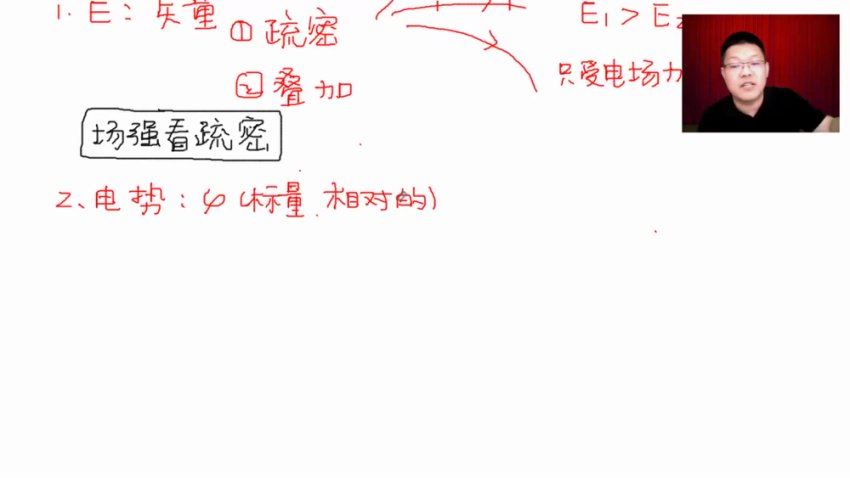 1. E: 矢量 ① 疏密 E₁ > E₂
② 叠加 只受电场力
场强看疏密
2、电势: φ (标量 相对的)